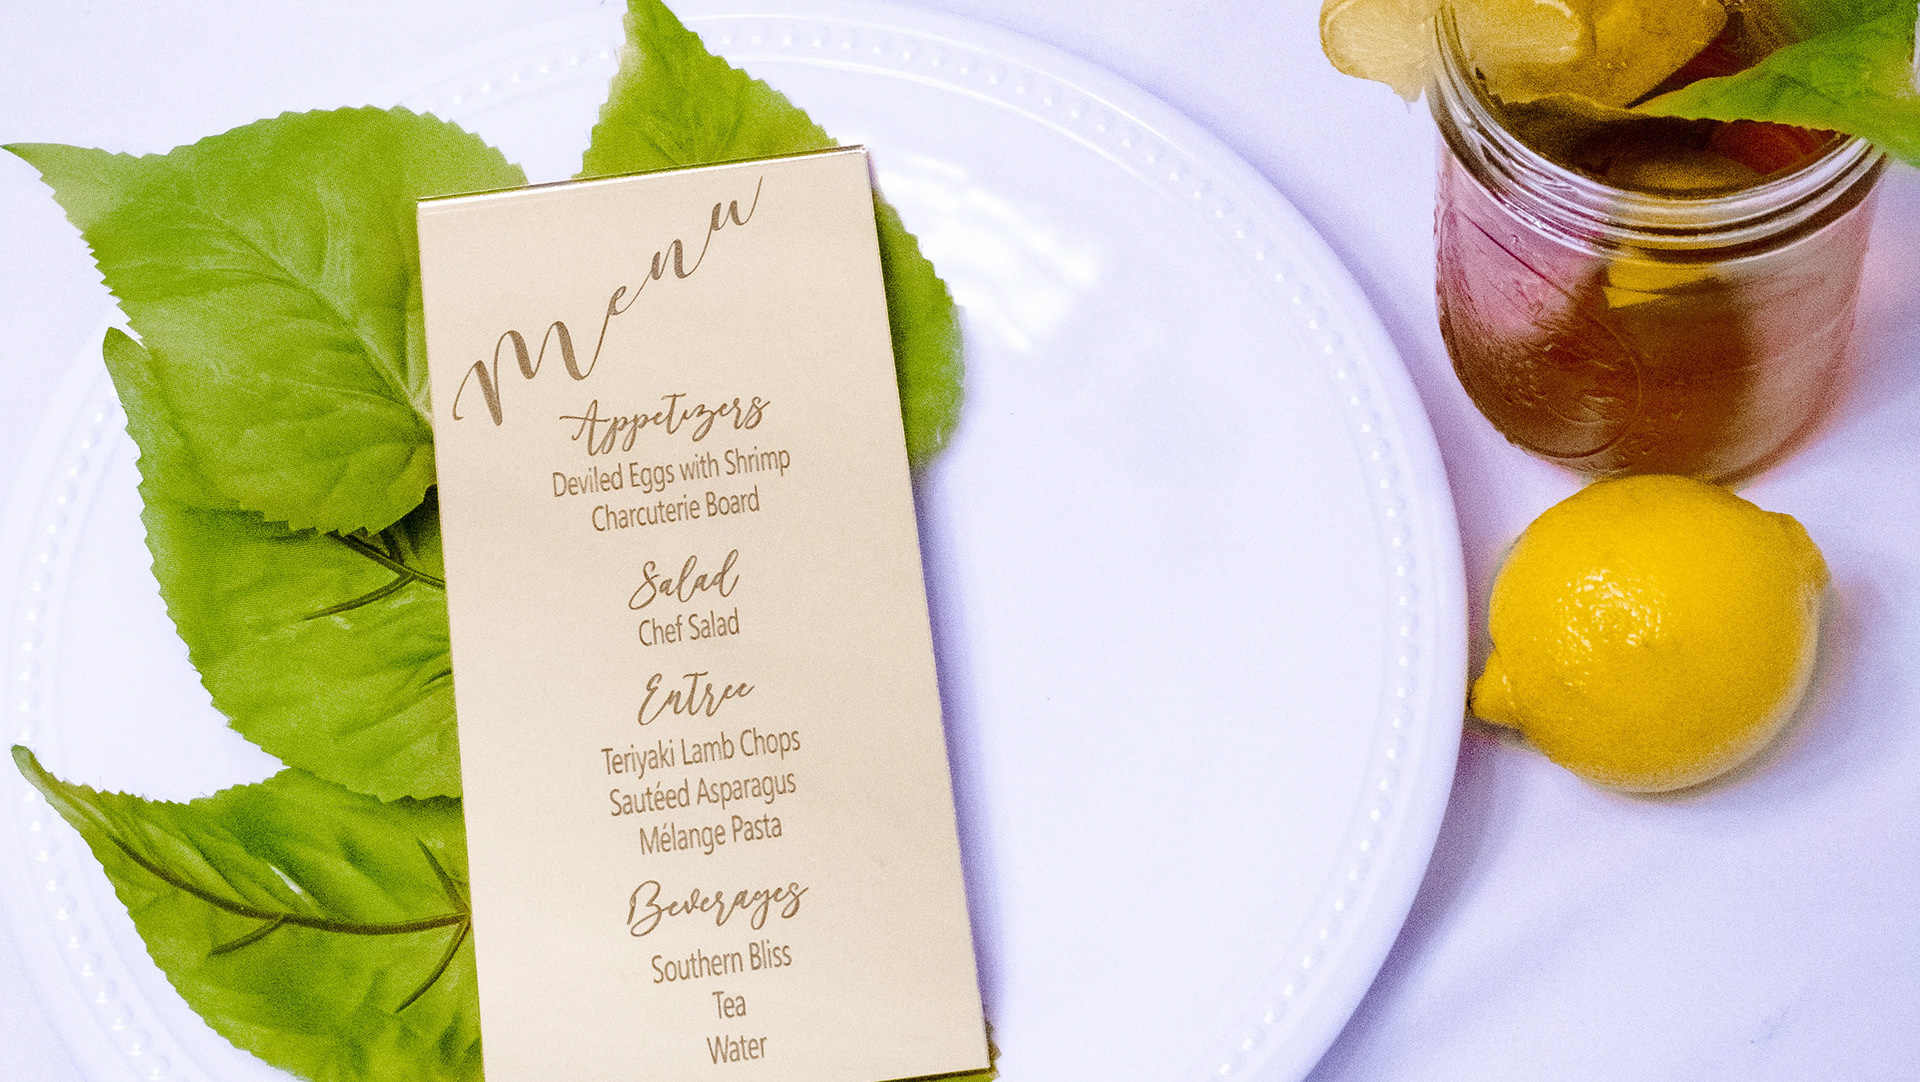 Menu
Appetizers
Deviled Eggs with Shrimp
Charcuterie Board
Salad
Chef Salad
Entree
Teriyaki Lamb Chops
Sautéed Asparagus
Mélange Pasta
Beverages
Southern Bliss
Tea
Water